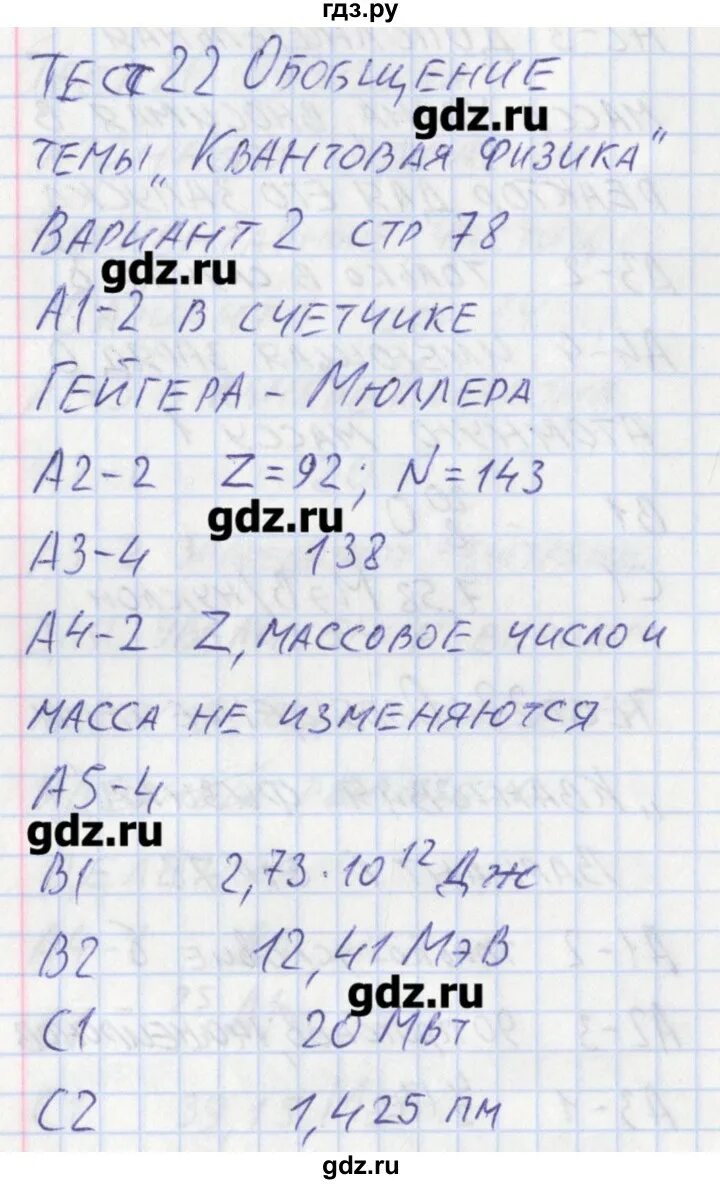 гдз.ру
ТЕСТ 22 ОБОБЩЕНИЕ
gdz.ru
ТЕМЫ „КВАНТОВАЯ ФИЗИКА"
ВАРИАНТ 2 СТР 78
gdz.ru
А1-2 В СЧЕТЧИКЕ
ГЕЙГЕРА - МЮЛЛЕРА
А2-2 Z=92; N=143
gdz.ru
А3-4 138
А4-2 Z, МАССОВОЕ ЧИСЛО И
МАССА НЕ ИЗМЕНЯЮТСЯ
А5-4
gdz.ru
В1 2,73·10¹² Дж
В2 12,41 МэВ
gdz.ru
С1 20 МВт
С2 1,425 пм
gdz.ru